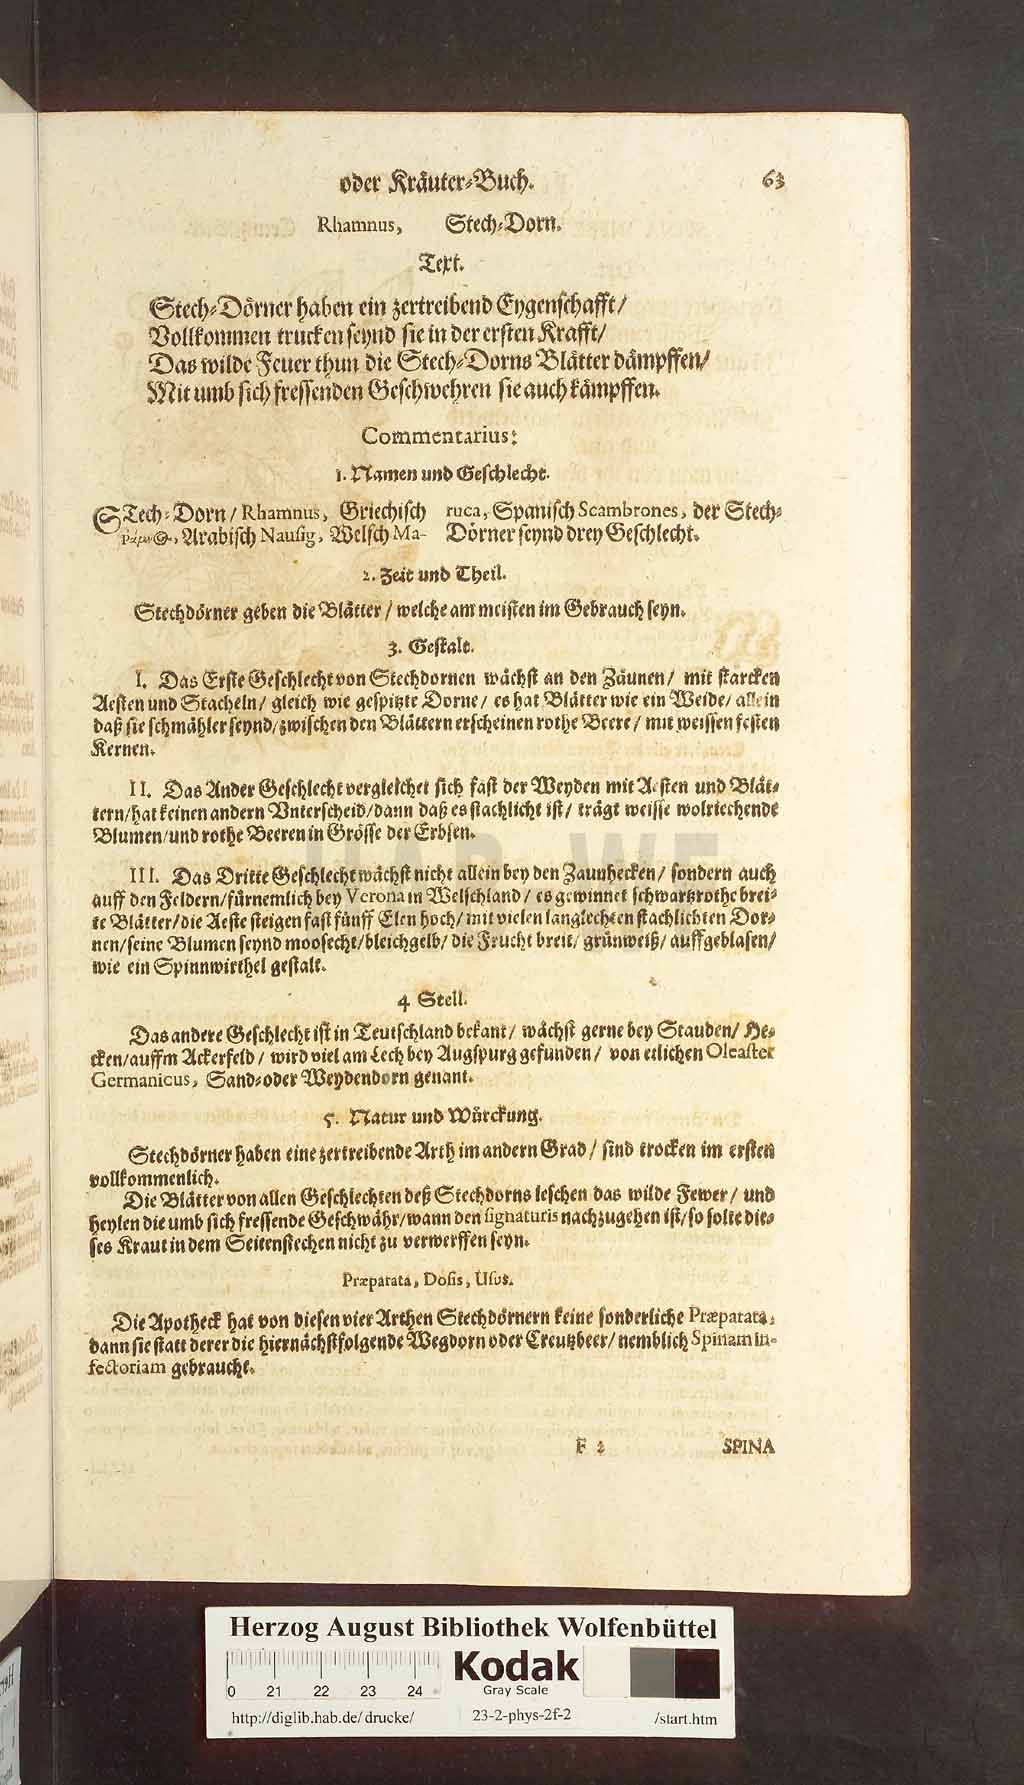 oder Kräuter-Buch. 63
Rhamnus, Stech-Dorn.
Text.
Stech-Dörner haben ein zertreibend Eygenschafft/
Vollkommen trucken seynd sie in der ersten Krafft/
Das wilde Feuer thun die Stech-Dorns Blätter dämpffen/
Mit umb sich fressenden Geschwehren sie auch kämpffen.
Commentarius:
1. Namen und Geschlecht.
STech-Dorn/ Rhamnus, Griechisch
Arabisch Nausig, Welsch Ma-
ruca, Spanisch Scambrones, der Stech-
Dörner seynd drey Geschlecht.
2. Zeit und Theil.
Stechdörner geben die Blätter/ welche am meisten im Gebrauch seyn.
3. Gestalt.
I. Das Erste Geschlecht von Stechdornen wächst an den Zäunen/ mit starcken
Aesten und Stacheln/ gleich wie gespitzte Dorne/ es hat Blätter wie ein Weide/ allein
daß sie schmähler seynd/ zwischen den Blättern erscheinen rothe Beere/ mit weissen festen
Kernen.
II. Das Ander Geschlecht vergleichet sich fast der Weyden mit Aesten und Blät-
tern/ hat keinen andern Vnterscheid/ dann daß es stachlicht ist/ trägt weisse wolriechende
Blumen/ und rothe Beeren in Grösse der Erbsen.
III. Das Dritte Geschlecht wächst nicht allein bey den Zaunhecken/ sondern auch
auff den Feldern/ fürnemlich bey Verona in Welschland/ es gewinnet schwartzrothe brei-
te Blätter/ die Aeste steigen fast fünff Elen hoch/ mit vielen langlechten stachlichten Dor-
nen/ seine Blumen seynd moosecht/ bleichgelb/ die Frucht breit/ grünweiß/ auffgeblasen/
wie ein Spinnwirthel gestalt.
4 Stell.
Das andere Geschlecht ist in Teutschland bekant/ wächst gerne bey Stauden/ He-
cken/ auffm Ackerfeld/ wird viel am Lech bey Augspurg gefunden/ von etlichen Oleaster
Germanicus, Sand-oder Weydendorn genant.
5. Natur und Würckung.
Stechdörner haben eine zertreibende Arth im andern Grad/ sind trocken im ersten
vollkommenlich.
Die Blätter von allen Geschlechten deß Stechdorns leschen das wilde Fewer/ und
heylen die umb sich fressende Geschwähr/ wann den signaturis nachzugehen ist/ so solte die-
ses Kraut in dem Seitenstechen nicht zu verwerffen seyn.
Præparata, Dosis, Usus.
Die Apotheck hat von diesen vier Arthen Stechdörnern keine sonderliche Præparata,
dann sie statt derer die hiernächstfolgende Wegdorn oder Creutzbeer/ nemblich Spinam in-
fectoriam gebraucht.
F 2 SPINA
Herzog August Bibliothek Wolfenbüttel
0 21 22 23 24
Kodak
Gray Scale
http://diglib.hab.de/drucke/ 23-2-phys-2f-2 /start.htm